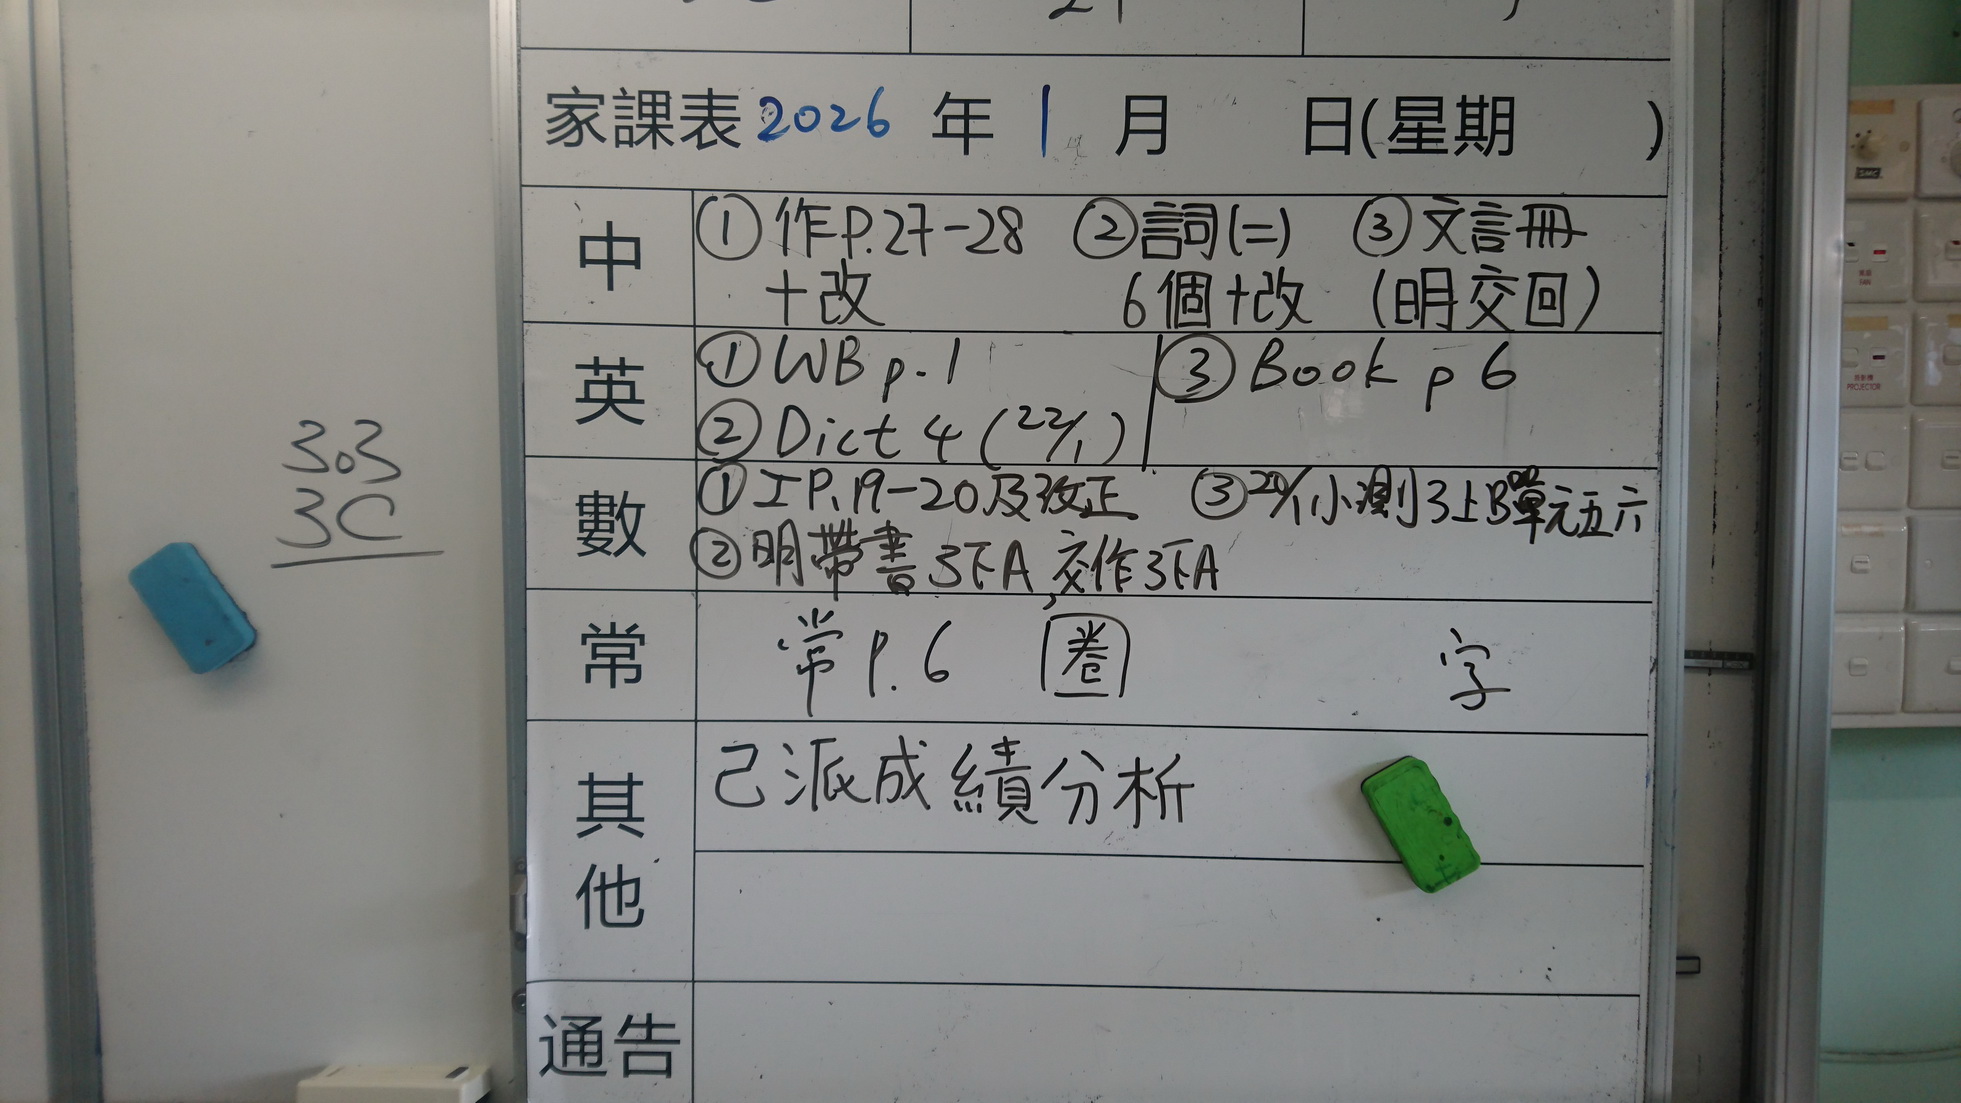 家課表 2026 年 1 月 日(星期 )
中
①作P.27-28 ②詞(二) ③文言冊
+改 6個+改 (明交回)
英
①WB p.1 ③Book p 6
②Dict 4 (22/1)
數
①工P.19-20及改正 ③20/1小測3上B單元五六
②明帶書3下A,交作3下A
常
常P.6 圈 字
其他
己派成績分析
通告
303
3C
FAN
PROJECTOR